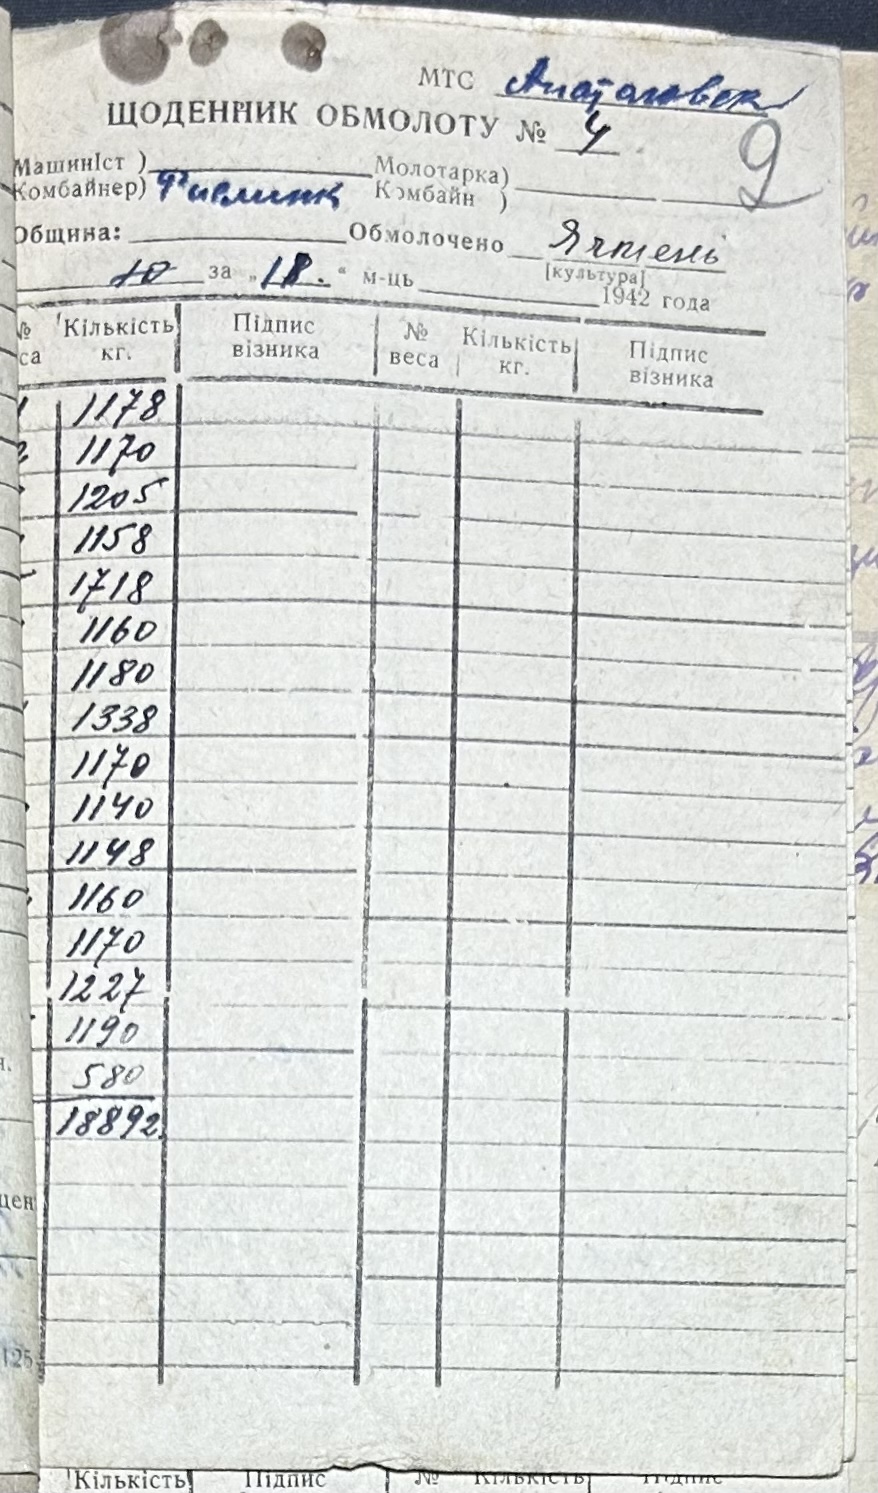 МТС
ЩОДЕННИК ОБМОЛОТУ № 4
9
Машиніст ) Молотарка)
Комбайнер) Комбайн )
Община: Обмолочено Ячмень
[культура]
за „18.“ м-ць 1942 года
№ Кількість Підпис № Кількість Підпис
са кг. візника веса кг. візника
1 1178
2 1170
1205
1158
1718
1160
1180
1338
1170
1140
1148
1160
1170
1227
1190
580
18892
н.
цен
125
Кількість Підпис № Кількість Підпис